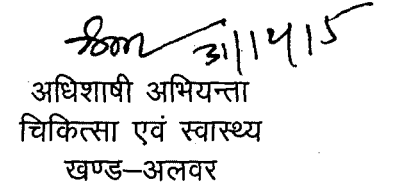 अधिशाषी अभियन्ता
चिकित्सा एवं स्वास्थ्य
खण्ड–अलवर